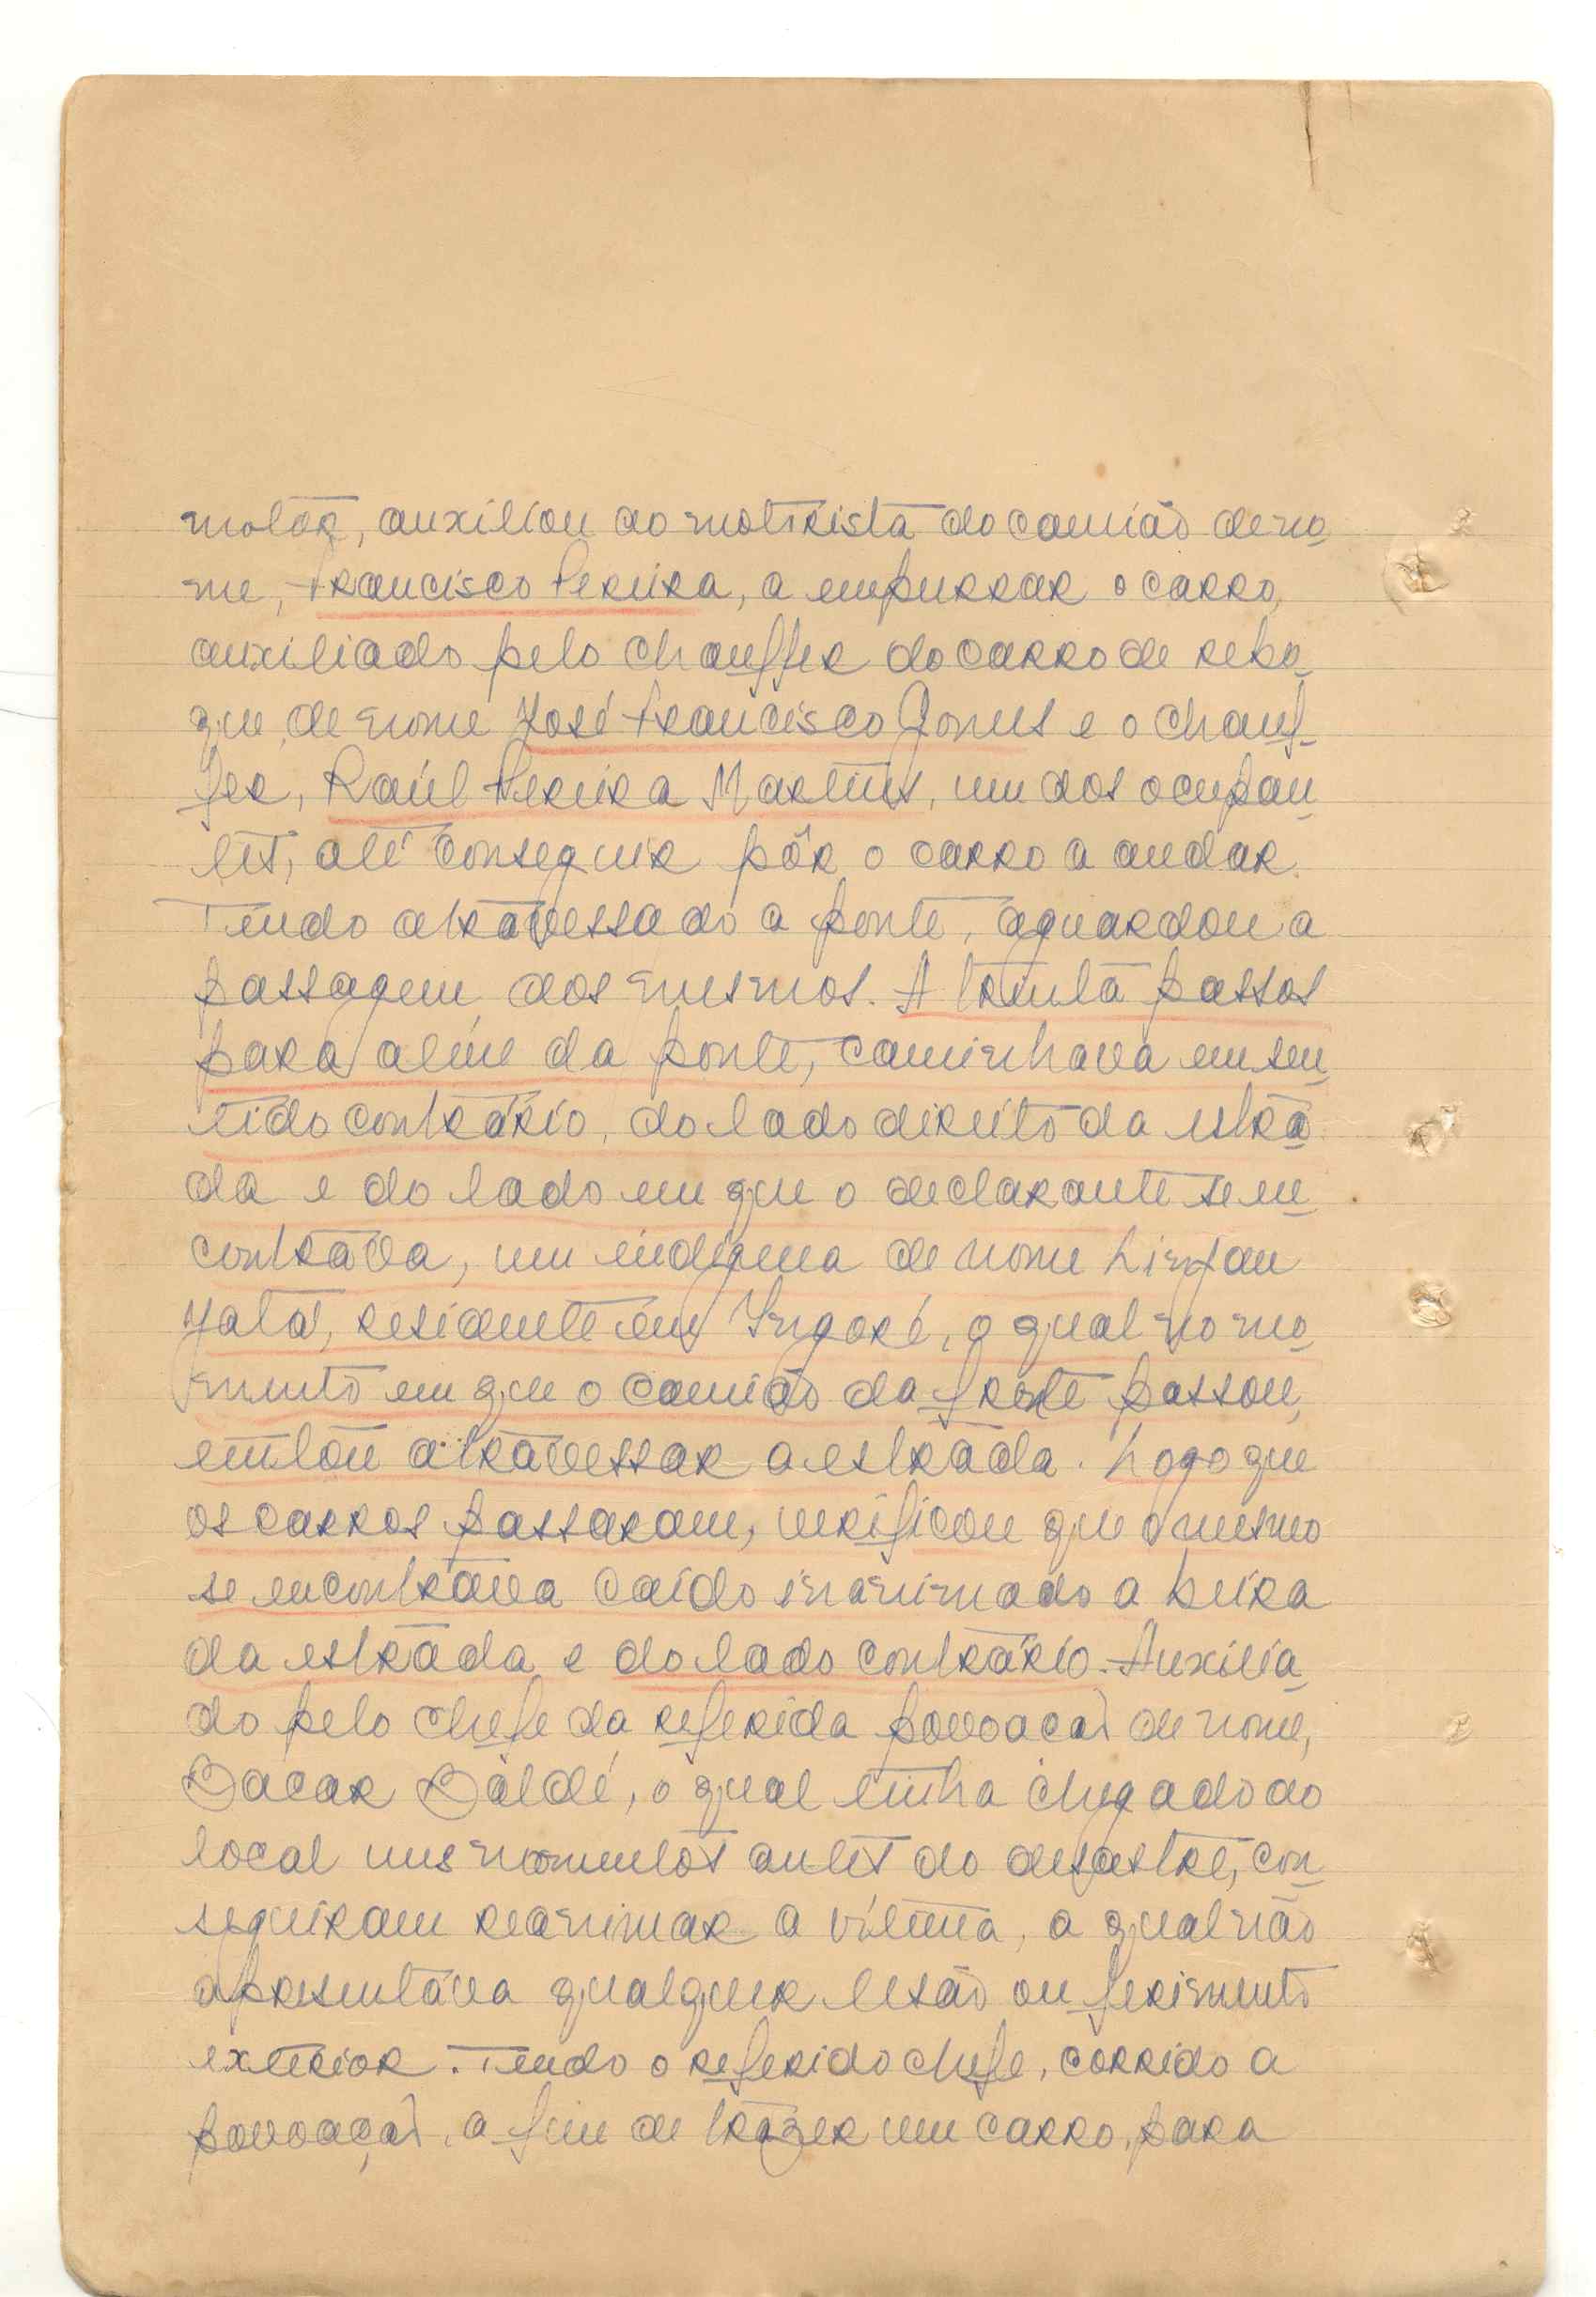 motor, auxiliou ao motorista do camião de no-
me, Francisco Pereira, a empurrar o carro,
auxiliado pelo chauffer do carro de rebo-
que, de nome José Francisco Gomes e o chauf-
fer, Raúl Pereira Martins, um dos ocupan-
tes, até conseguir pôr o carro a andar.
Tendo atravessado a ponte, aguardou a
passagem dos mesmos. A trinta passos
para além da ponte, caminhava em sen-
tido contrário, do lado direito da estra-
da e do lado em que o declarante se en-
contrava, um indígena de nome
Jatá, residente em Ingoré, o qual no mo-
mento em que o camião da frente passou,
tentou atravessar a estrada. Logo que
os carros passaram, verificou que o mesmo
se encontrava caído inanimado a beira
da estrada e do lado contrário. Auxilia-
do pelo chefe da referida povoação de nome,
Bacar Baldé, o qual tinha chegado ao
local uns momentos antes do desastre, con-
seguiram reanimar a vítima, a qual não
apresentava qualquer lesão ou ferimento
exterior. Tendo o referido chefe, corrido a
povoação, a fim de trazer um carro, para